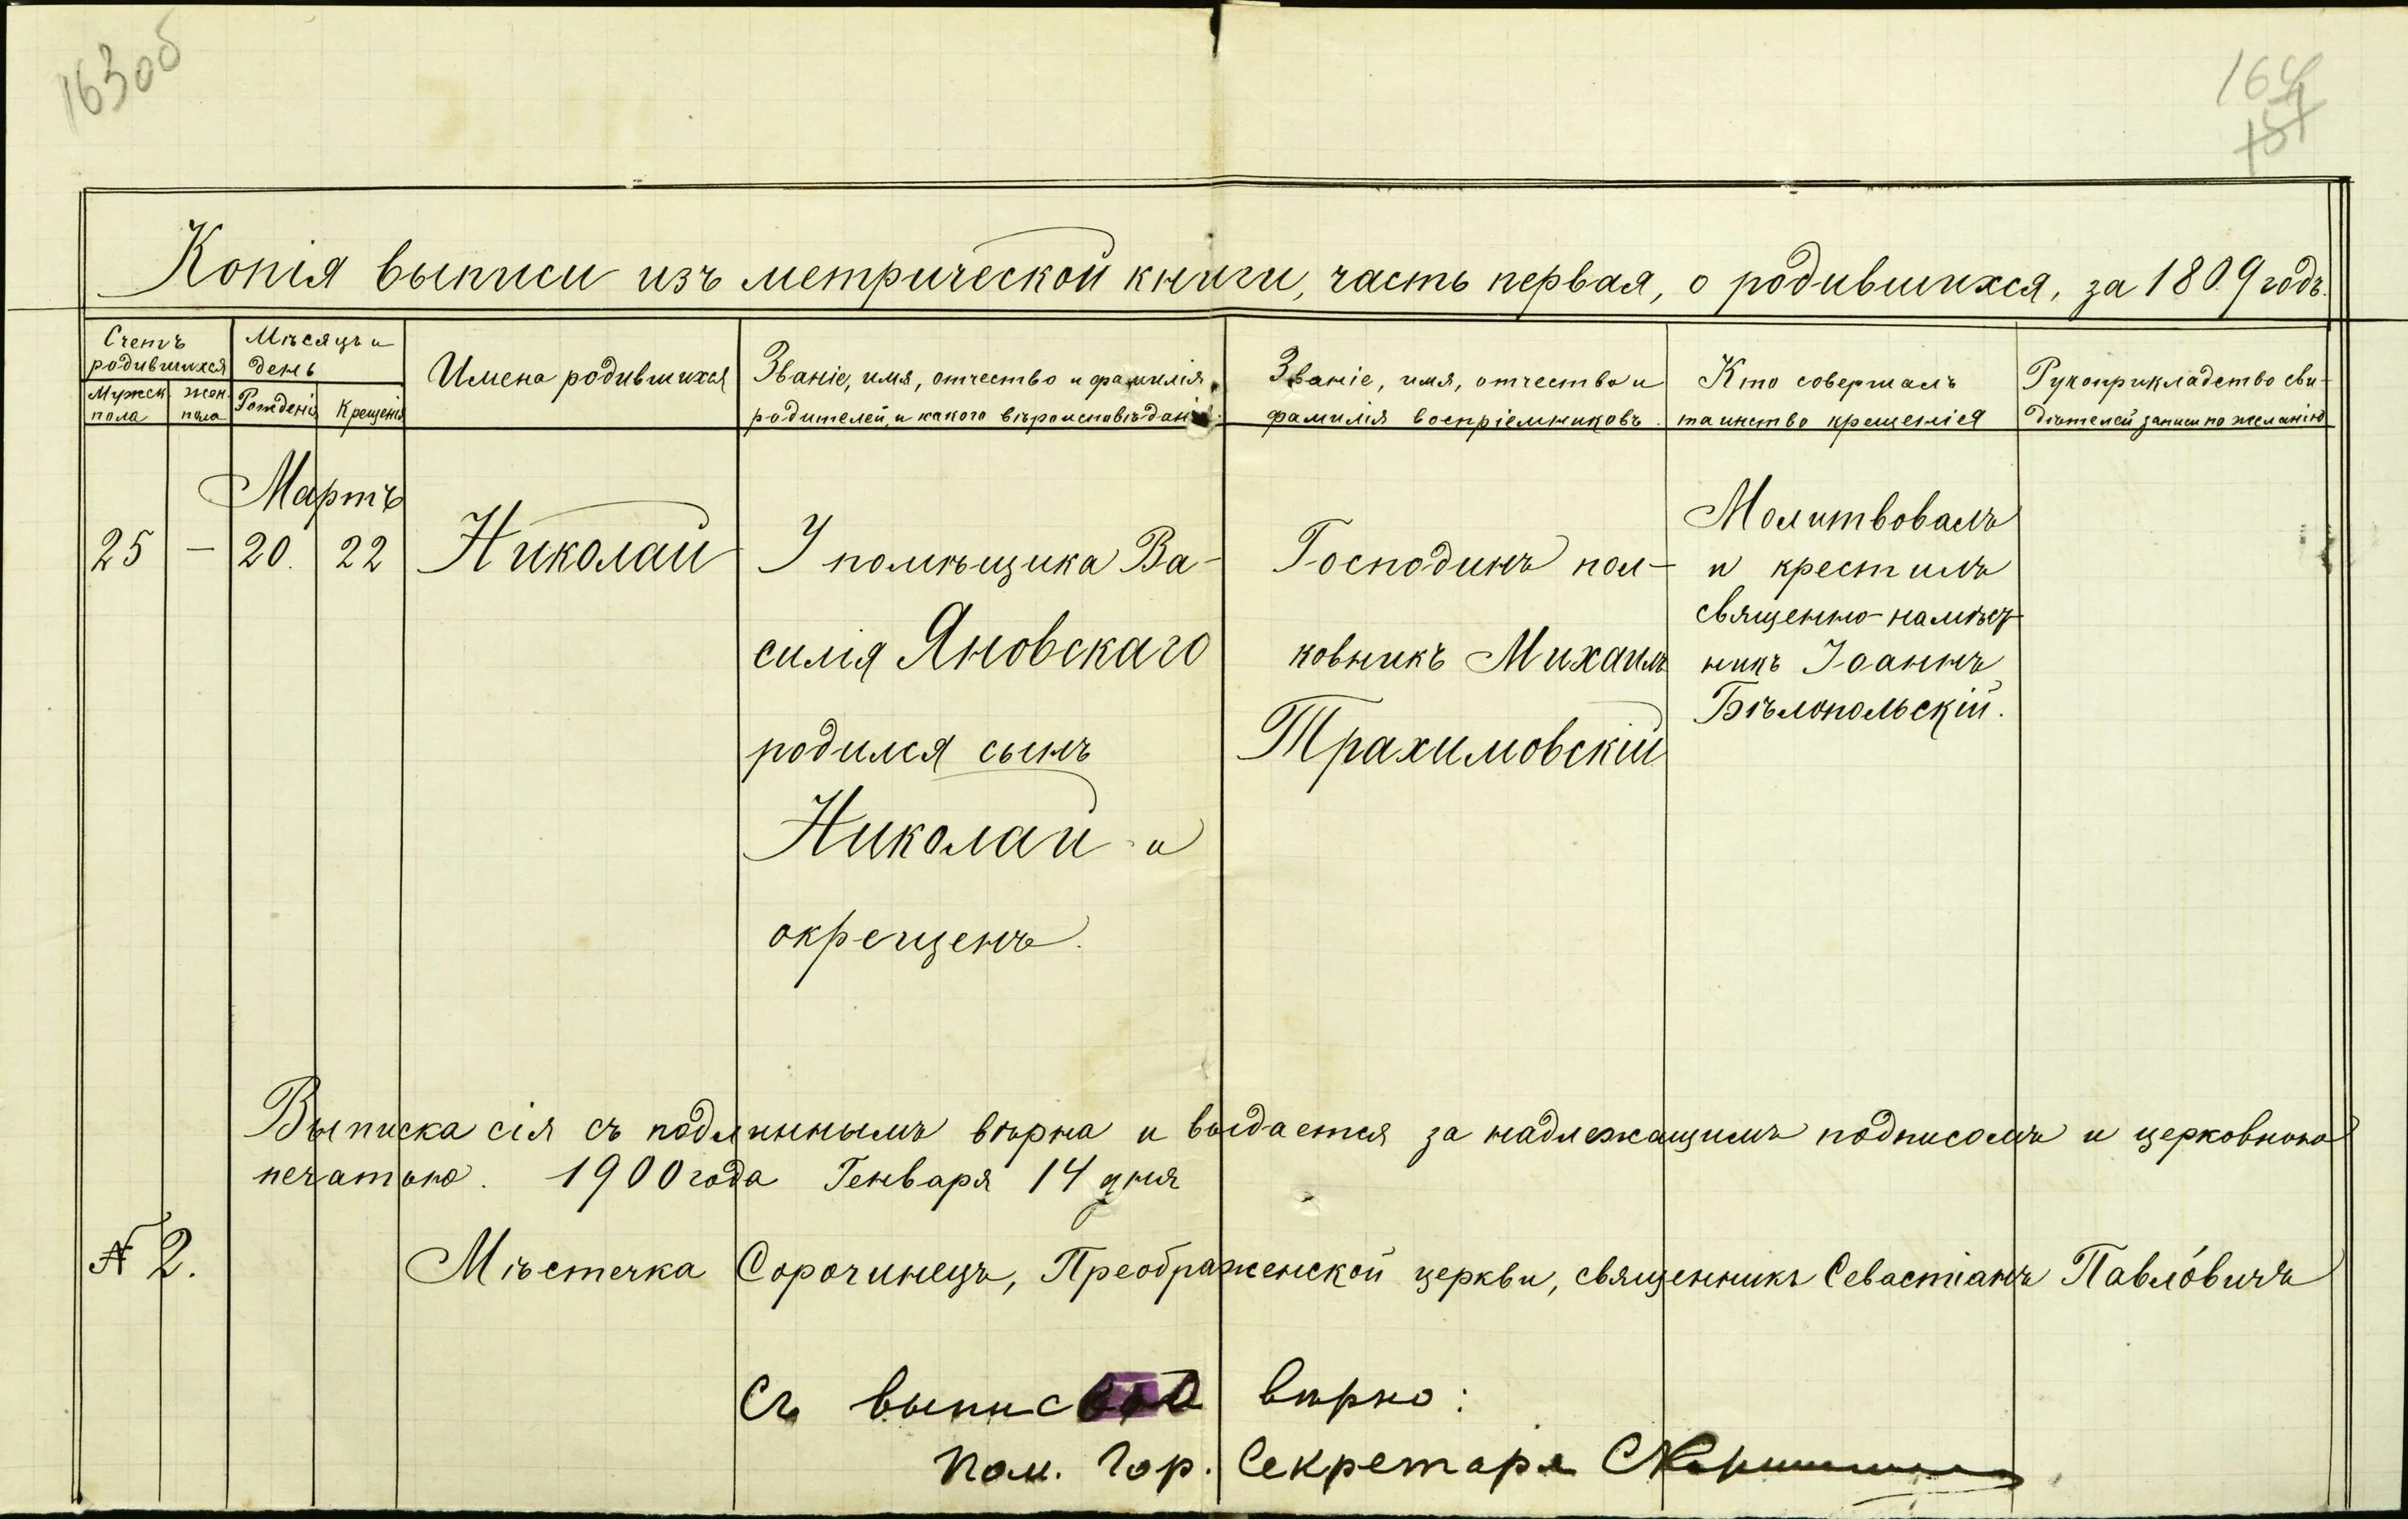 163об
164
Копія выписи изъ метрической книги, часть первая, о родившихся, за 1809 годъ.
Счетъ родившихся
Мѣсяцъ и день
Мужск. пола
жен. пола
Рожденія
Крещенія
Имена родившихся
Званіе, имя, отчество и фамилія
родителей, и какого вѣроисповѣданія.
Званіе, имя, отчество и
фамилія воспріемниковъ.
Кто совершалъ
таинство крещенія
Рукоприкладство сви-
дѣтелей записи по желанію
Мартъ
25 — 20. 22 Николай
У помѣщика Ва-
силія Яновскаго
родился сынъ
Николай и
окрещенъ.
Господинъ пол-
ковникъ Михаилъ
Трахимовскій
Молитвовалъ
и крестилъ
священно-намѣст-
никъ Іоаннъ
Бѣлопольскій.
Выписка сія съ подлиннымъ вѣрна и выдается за надлежащимъ подписомъ и церковною
печатью. 1900 года Генваря 14 дня
№ 2.
Мѣстечка Сорочинецъ, Преображенской церкви, священникъ Севастіанъ Павло́вичъ
Съ вѣрно:
Пом. Гор. Секретаря